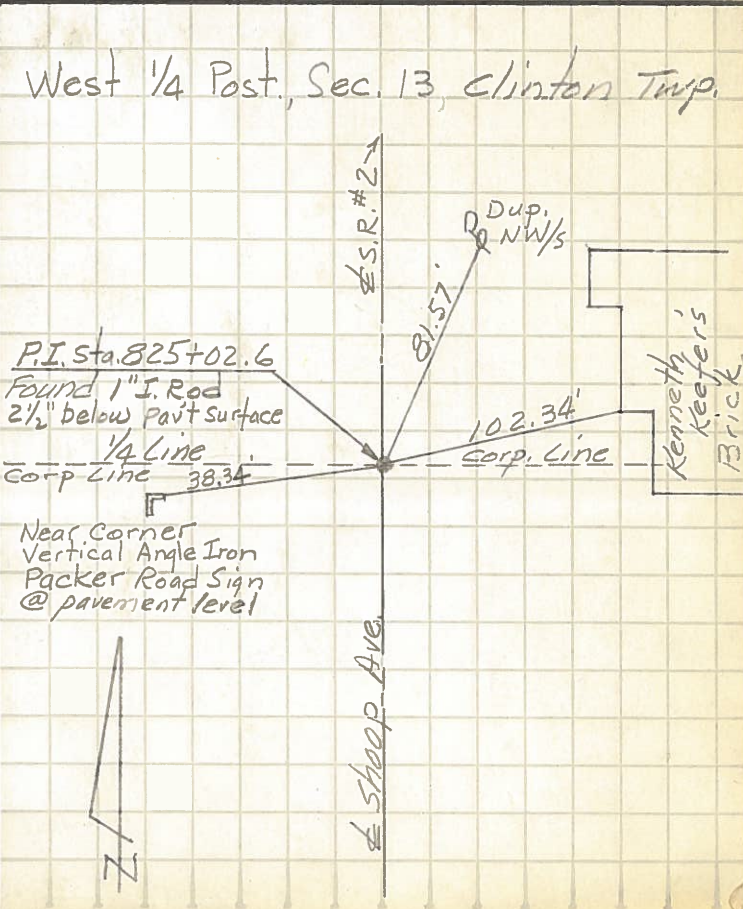 West 1/4 Post., Sec. 13, Clinton Twp.
℄ S.R. #2 →
Dup.
NW/s
81.57'
P.I. Sta. 825+02.6
Found 1" I. Rod
2 1/2" below pav't Surface
1/4 Line
Corp Line
38.34'
102.34'
Corp. Line
Kenneth
Keefer's
Brick
Near Corner
Vertical Angle Iron
Packer Road Sign
@ pavement level
℄ Shoop Ave.
N